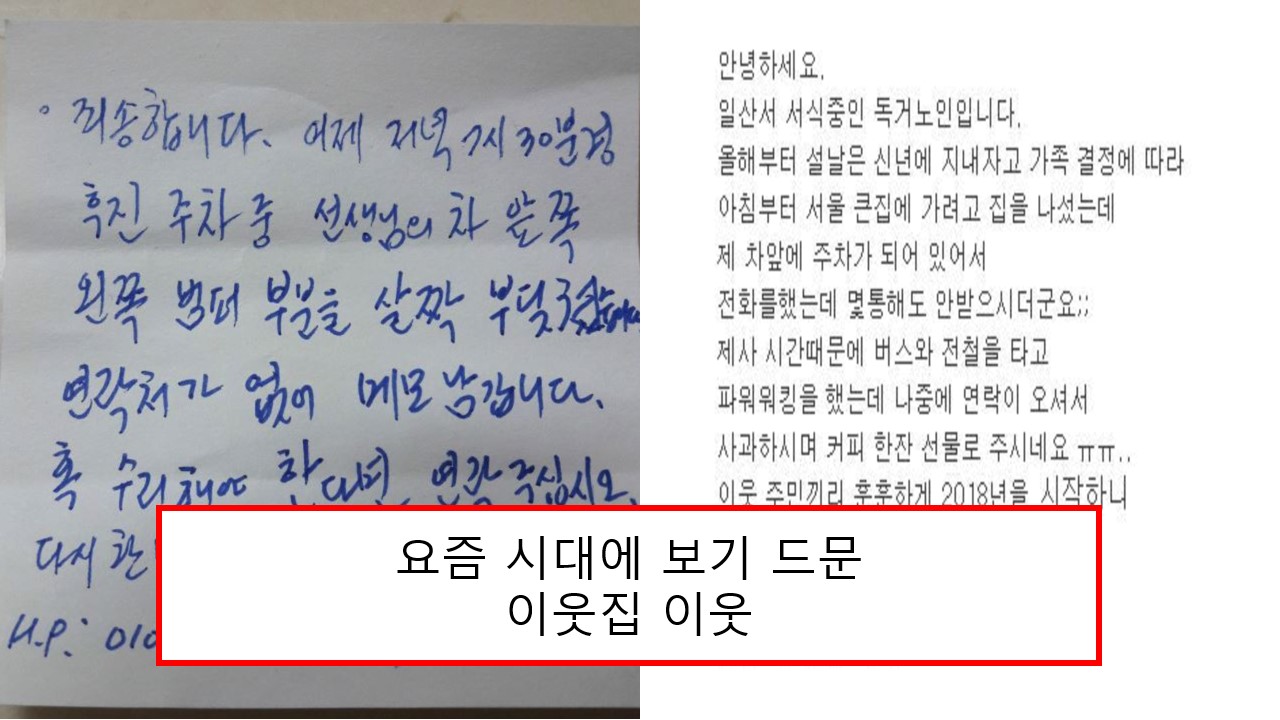 죄송합니다. 어제 저녁 7시 30분경
후진 주차 중 선생님의 차 앞쪽
왼쪽 범퍼 부분을 살짝
연락처가 없어 메모 남깁니다.
혹 수리해야 한다면 연락 주십시오.
다시 한
H.P: 010
안녕하세요.
일산서 서식중인 독거노인입니다.
올해부터 설날은 신년에 지내자고 가족 결정에 따라
아침부터 서울 큰집에 가려고 집을 나섰는데
제 차앞에 주차가 되어 있어서
전화를했는데 몇통해도 안받으시더군요;;
제사 시간때문에 버스와 전철을 타고
파워워킹을 했는데 나중에 연락이 오셔서
사과하시며 커피 한잔 선물로 주시네요 ㅠㅠ..
이웃 주민끼리 훈훈하게 2018년을 시작하니
요즘 시대에 보기 드문
이웃집 이웃